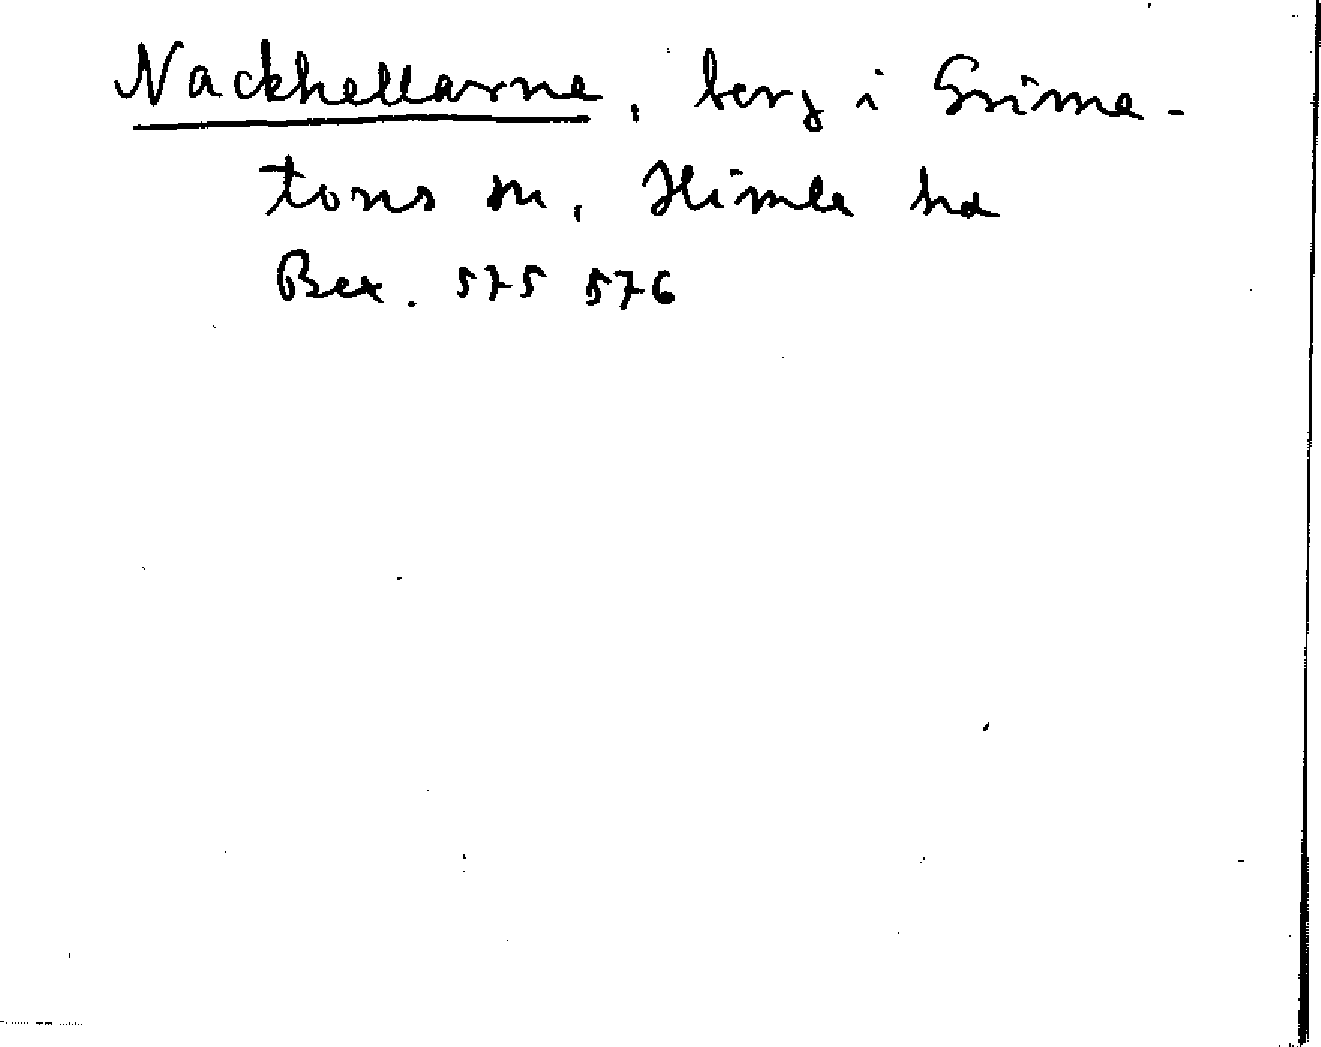 Nackhellarne, berg i Grime-
tons sn, Himle hd
Bex. 575 576